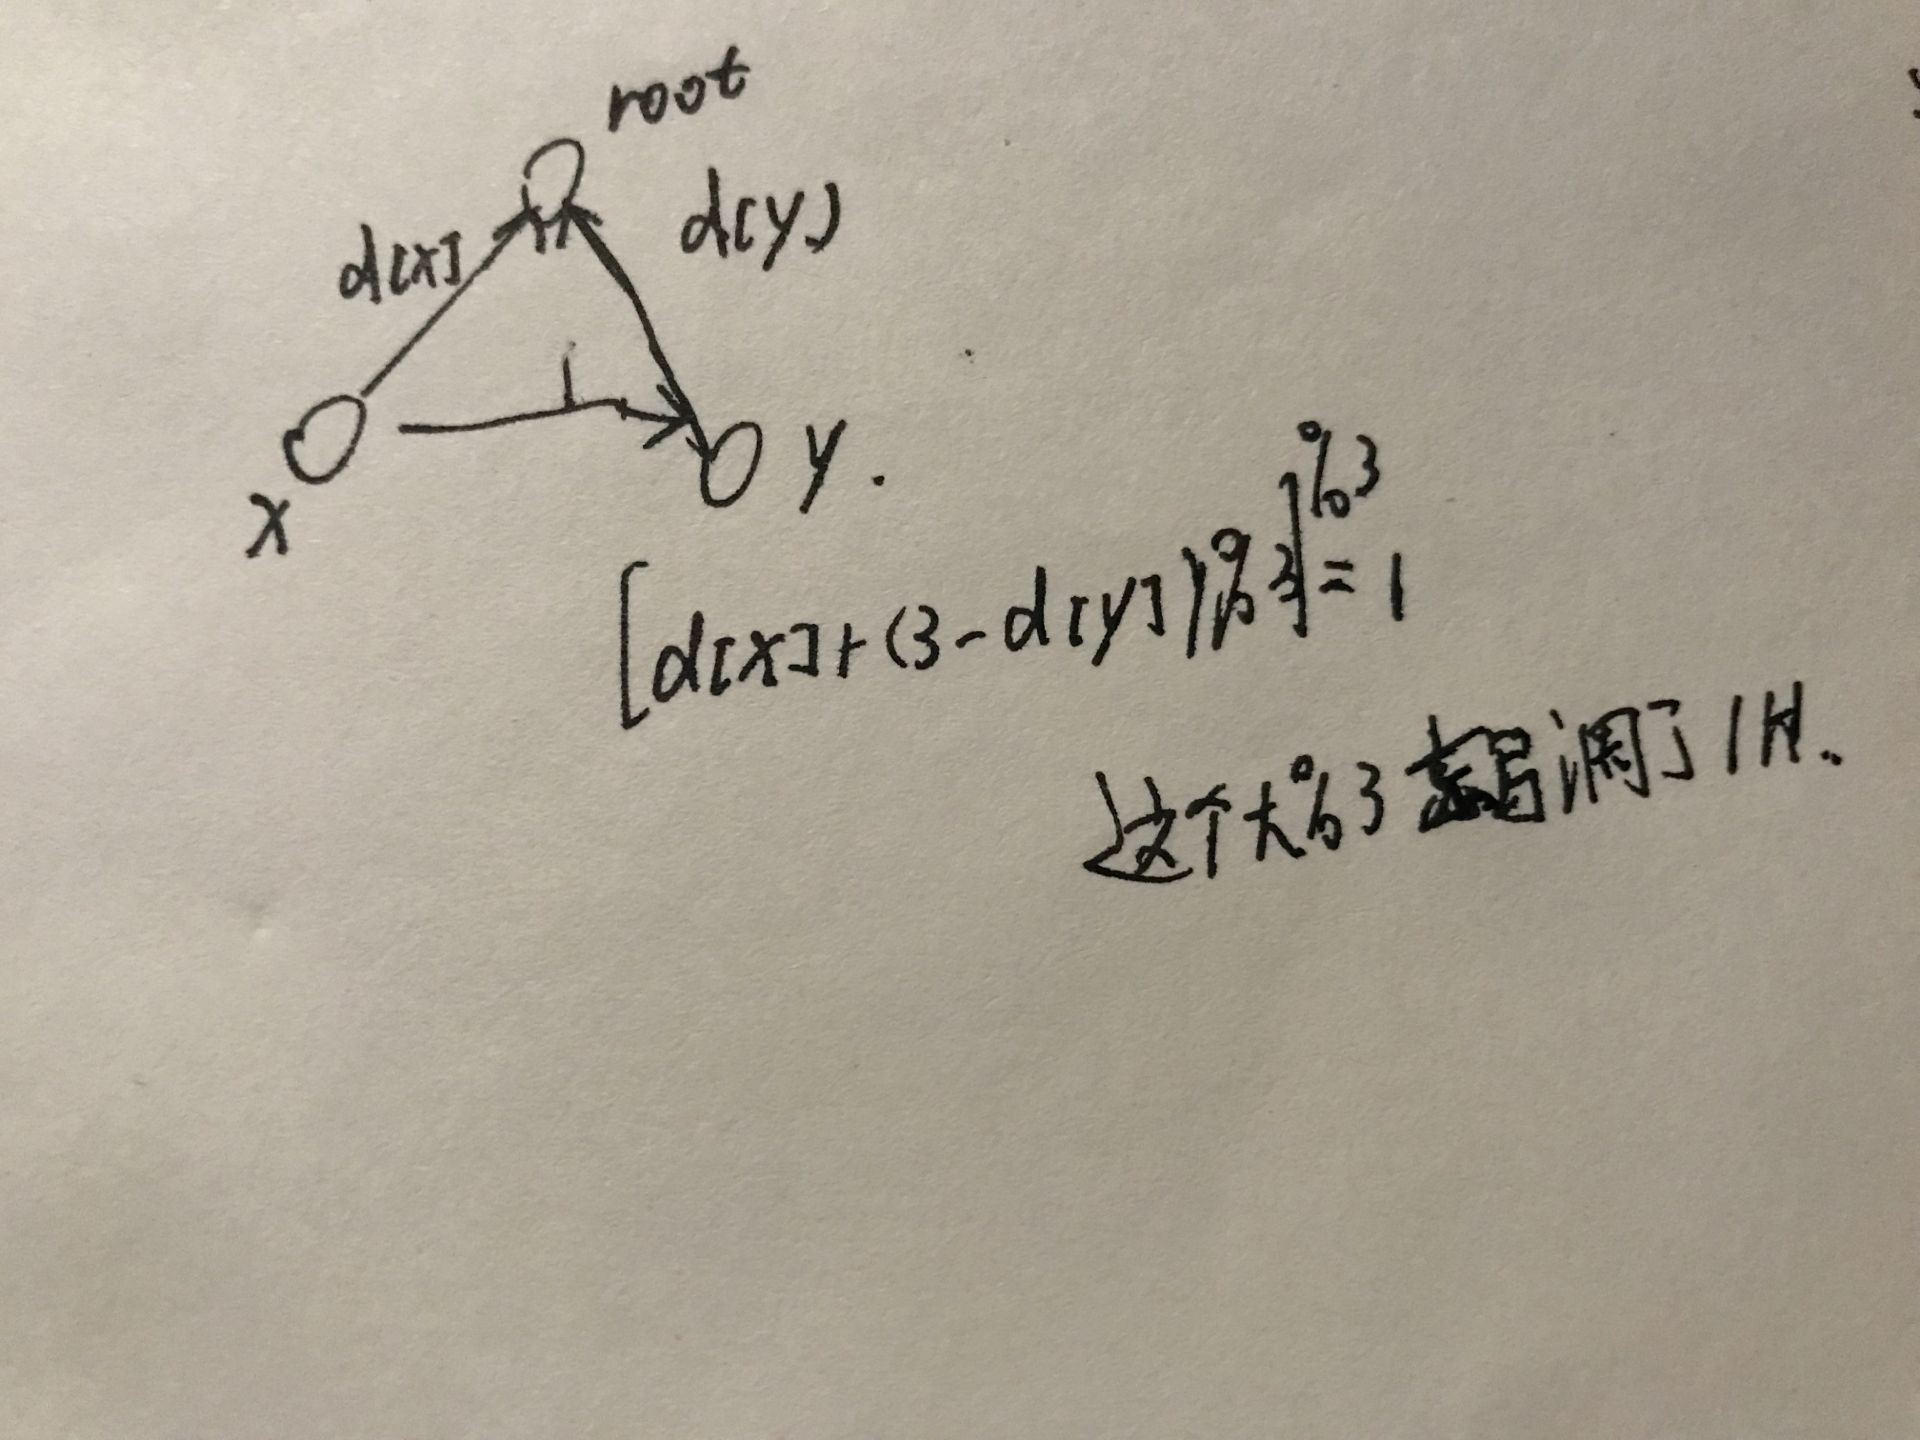 root
d[x]
d[y]
1
x
y.
[d[x]+(3-d[y])%3]%3=1
这个大%3 调了1H.